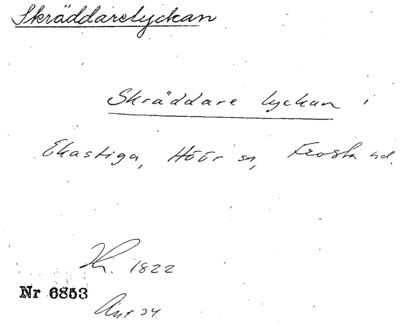 Skräddarelyckan
Skräddare lyckan i
Ekastiga, Höör sn, Frosta hd.
1822
Nr 6853